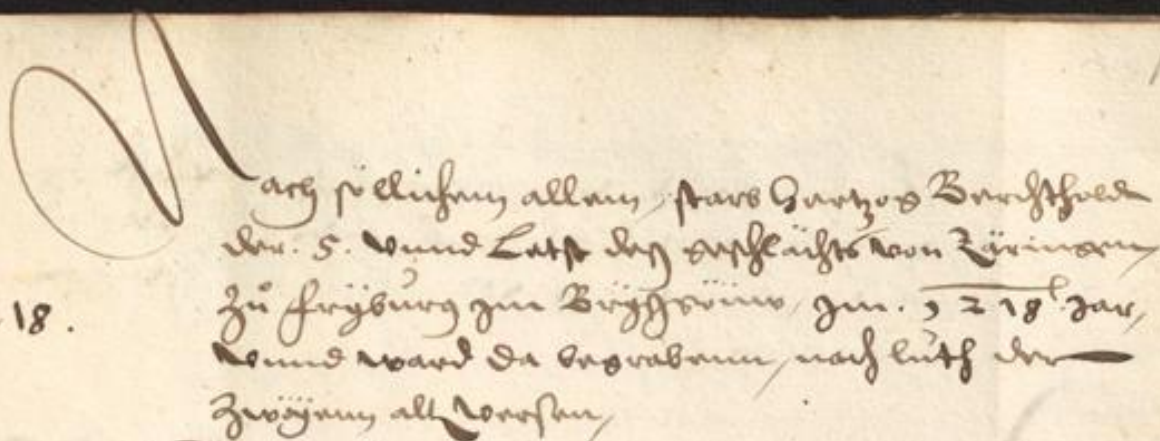 Nach söllichem allem, starb Hertzog Berchthold
der. 5. vnnd Letst deß geschlächts von Zäringen,
18. Zů fryburg im Bryßgöüw, Im. 1218. Jar,
vnnd ward da begrabenn, nach luth der
Zwöyenn alt versen,